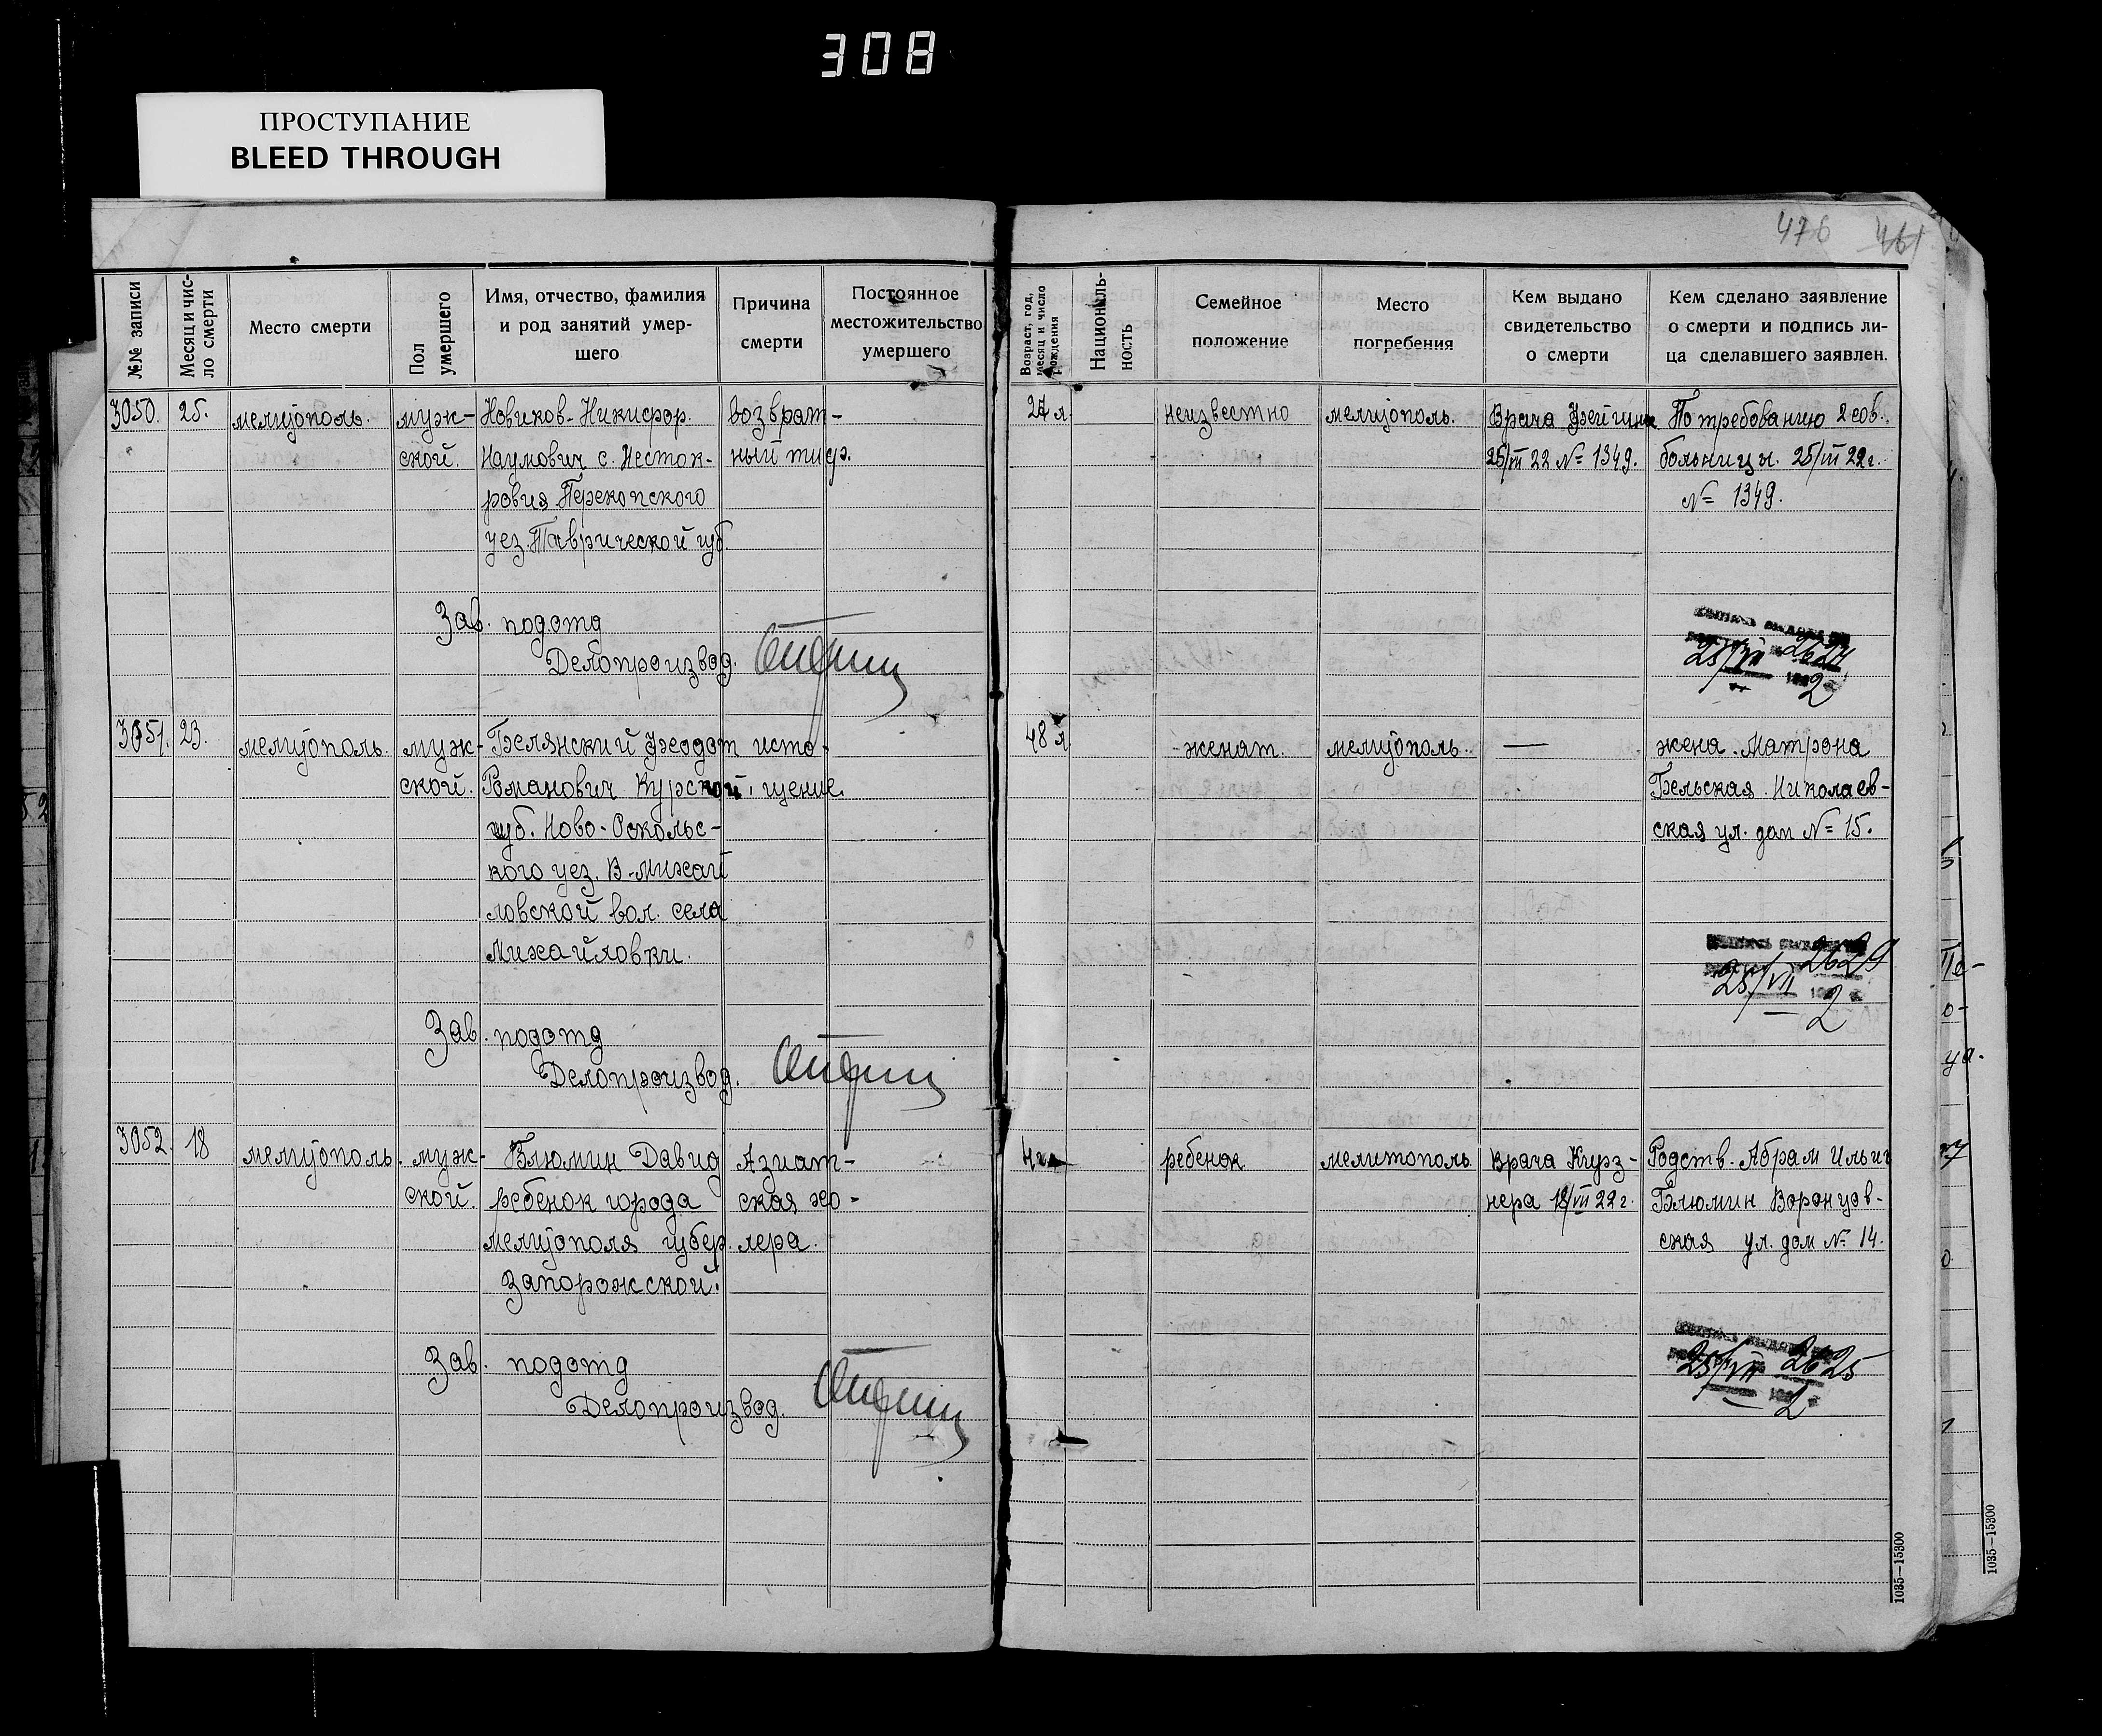 308
ПРОСТУПАНИЕ
BLEED THROUGH
476 461
№№ записи
Месяц и чис-
ло смерти
Место смерти
Пол
умершего
Имя, отчество, фамилия
и род занятий умер-
шего
Причина
смерти
Постоянное
местожительство
умершего
Возраст, год,
месяц и число
рождения
Националь-
ность
Семейное
положение
Место
погребения
Кем выдано
свидетельство
о смерти
Кем сделано заявление
о смерти и подпись ли-
ца сделавшего заявлен.
3050.
25.
мелитополь.
муж-
ской.
Новиков-Никифор.
Наумович с.
ровия Перекопского
уез. Таврической губ.
возврат-
ный тиф.
неизвестно
мелитополь.
Врача
25/VII 22 № 1349.
По требованию 2 сов.
больницы. 25/VII 22 г.
№ 1349.
Зав. подотд
Делопроизвод.
25/VII 2627
2
3051.
23.
мелитополь.
муж-
ской.
Белянский Феодот
Романович Курской
губ. Ново-Оскольс-
кого уез. В-михай
ловской вол. села
Михайловки.
исто-
щение
48 л
женат.
мелитополь.
—
жена. Матрона
Бельская. Николаев-
ская ул. дом № 15.
Зав. подотд
Делопроизвод.
25/VII 2629
2
3052.
18
мелитополь.
муж-
ской.
Блюмин Давид
ребенок города
мелитополя губер.
Запорожской.
Азиат-
ская хо-
лера.
ребенок
мелитополь
врача Кирз-
нера 18/VII 22 г.
Родств. Абрам Ильич
Блюмин Воронцов-
ская ул. дом № 14.
Зав. подотд
Делопроизвод.
25/VII 2625
2
1035—15300
1035—15300